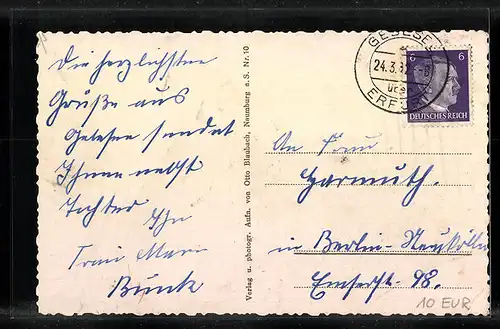 Die herzlichsten
Grüße aus
Gebesee sendet
Ihnen nebst
Tochter
Ihr
Frau Marie
Bunk
Verlag u. photogr. Aufn. von Otto Blaubach, Naumburg a. S. Nr. 10
GEBESEE
24.3.
ERFURT
6 6
DEUTSCHES REICH
An Frau
Harmuth.
in Berlin-Neukölln
Emserstr. 98.
10 EUR